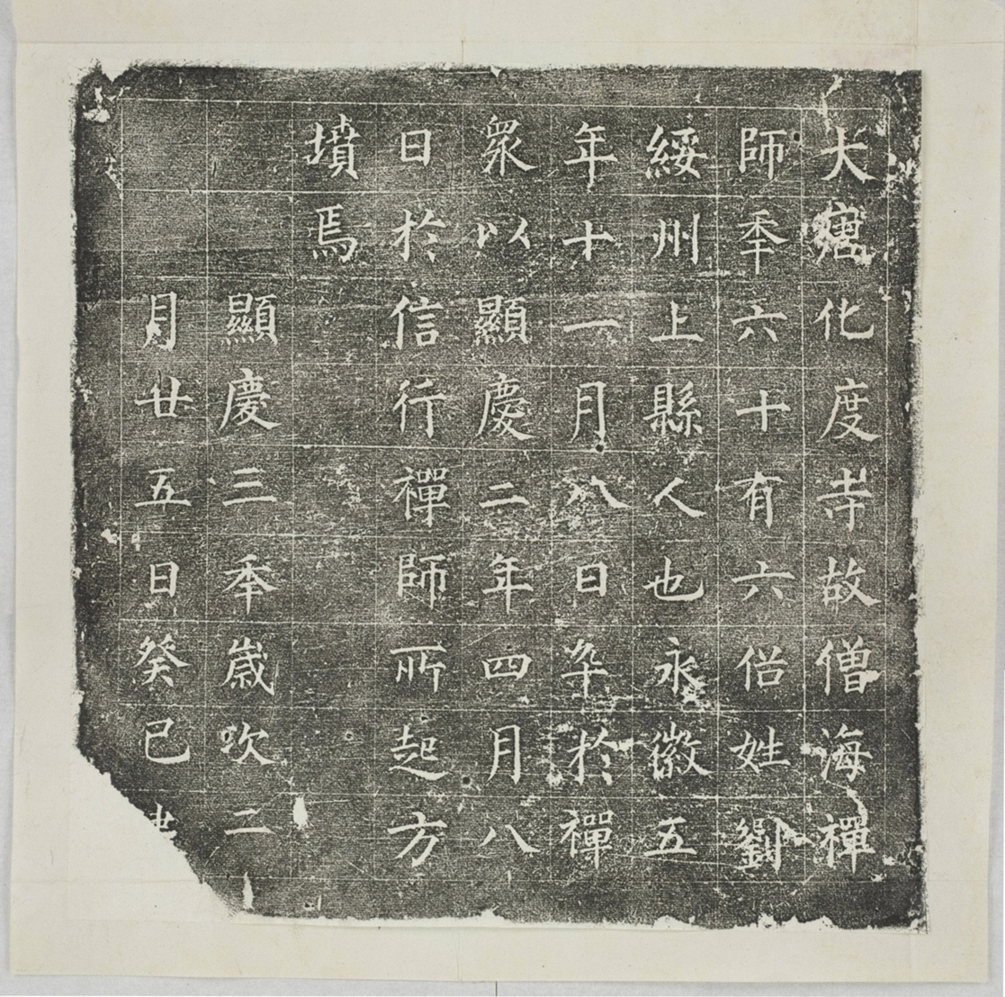 大唐化度寺故僧海禪
師年六十有六俗姓劉
綏州上縣人也永徽五
年十一月八日卒於禪
衆以顯慶二年四月八
日於信行禪師所起方
墳焉
顯慶三年歲次二
月廿五日癸巳